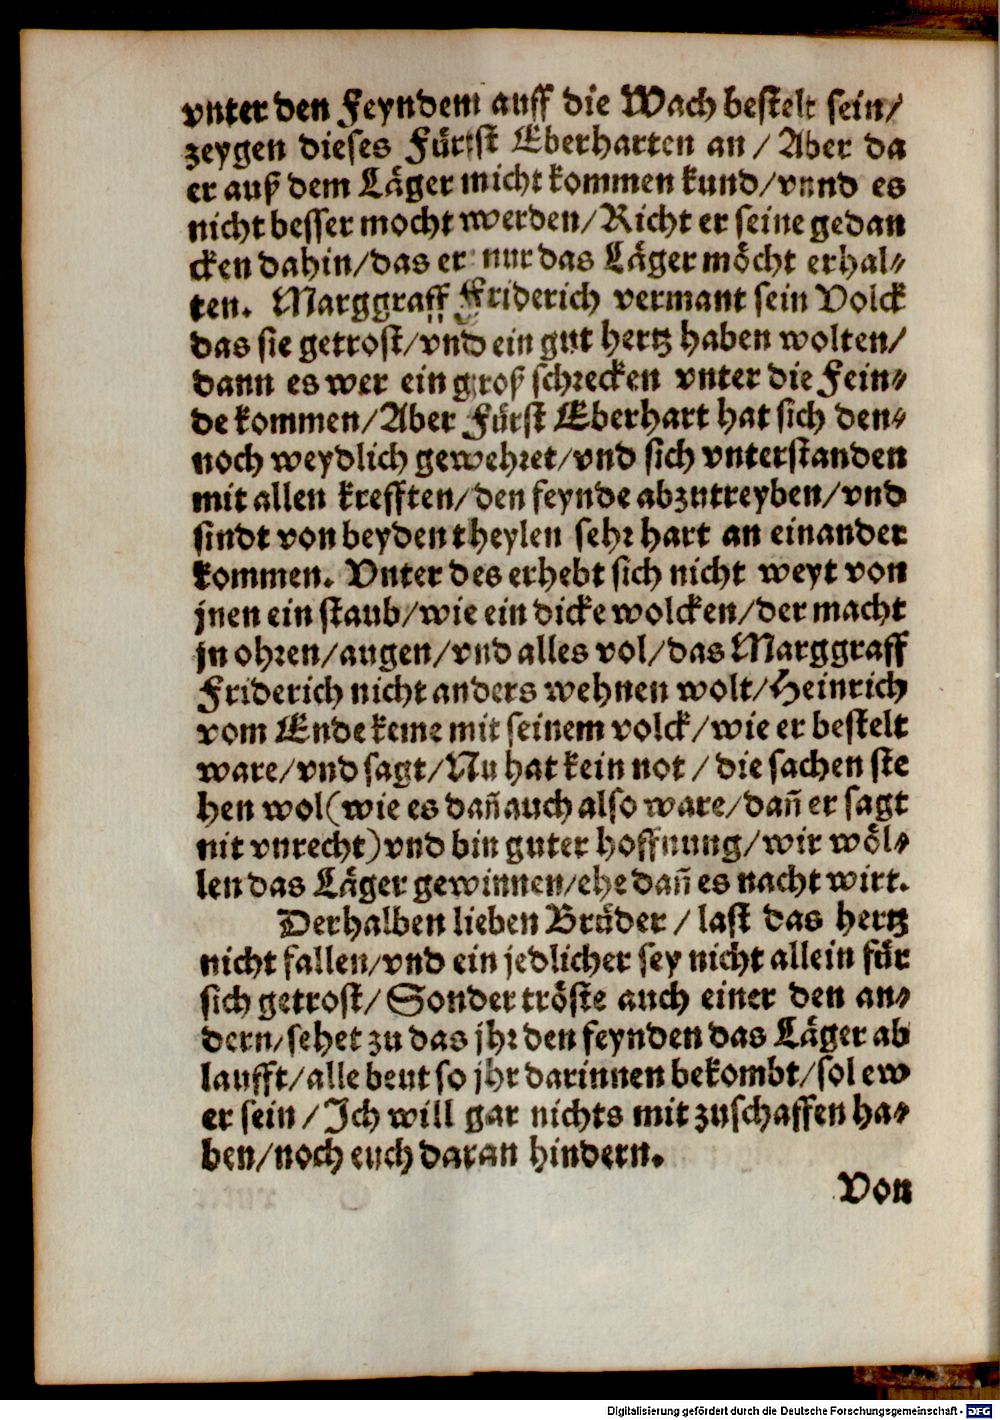 vnter den Feyndem auff die Wach bestelt sein/
zeygen dieses Fürst Eberharten an / Aber da
er auß dem Läger micht kommen kund/vnnd es
nicht besser mocht werden/Richt er seine gedan
cken dahin/das er nur das Läger möcht erhal⸗
ten. Marggraff Friderich vermant sein Volck
das sie getrost/vnd ein gut hertz haben wolten/
dann es wer ein groß schrecken vnter die Fein⸗
de kommen/Aber Fürst Eberhart hat sich den⸗
noch weydlich gewehret/vnd sich vnterstanden
mit allen krefften/den feynde abzutreyben/vnd
sindt von beyden theylen sehr hart an einander
kommen. Vnter des erhebt sich nicht weyt von
jnen ein staub/wie ein dicke wolcken/der macht
jn ohren/augen/vnd alles vol/das Marggraff
Friderich nicht anders wehnen wolt/Heinrich
vom Ende keme mit seinem volck/wie er bestelt
ware/vnd sagt/Nu hat kein not / die sachen ste
hen wol(wie es dañ auch also ware/dañ er sagt
nit vnrecht)vnd bin guter hoffnung/wir wöl⸗
len das Läger gewinnen/ehe dañ es nacht wirt.
Derhalben lieben Brüder / last das hertz
nicht fallen/vnd ein jedlicher sey nicht allein für
sich getrost/ Sonder tröste auch einer den an⸗
dern/sehet zu das jhr den feynden das Läger ab
laufft/alle beut so jhr darinnen bekombt/sol ew
er sein / Ich will gar nichts mit zuschaffen ha⸗
ben/noch euch daran hindern.
Von
Digitalisierung gefördert durch die Deutsche Forschungsgemeinschaft - DFG